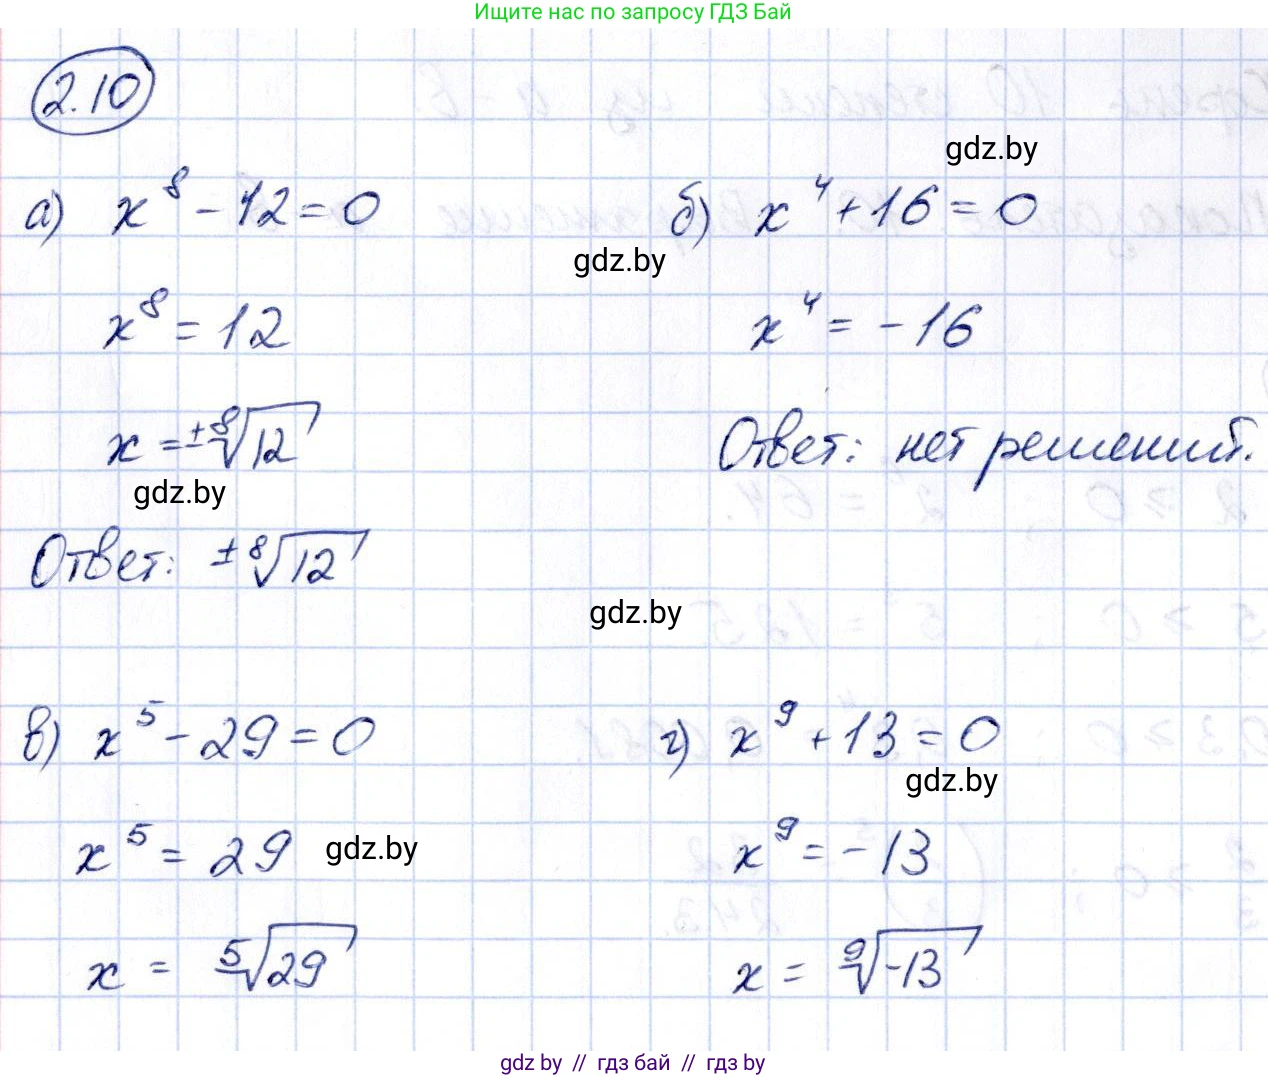 Ищите нас по запросу ГДЗ Бай
2.10
gdz.by
а) x⁸ - 12 = 0
б) x⁴ + 16 = 0
gdz.by
x⁸ = 12
x⁴ = -16
x = ±⁸√12
Ответ: нет решений.
gdz.by
Ответ: ±⁸√12
gdz.by
в) x⁵ - 29 = 0
г) x⁹ + 13 = 0
gdz.by
x⁵ = 29
gdz.by
x⁹ = -13
x = ⁵√29
x = ⁹√-13
gdz.by // гдз бай // гдз by